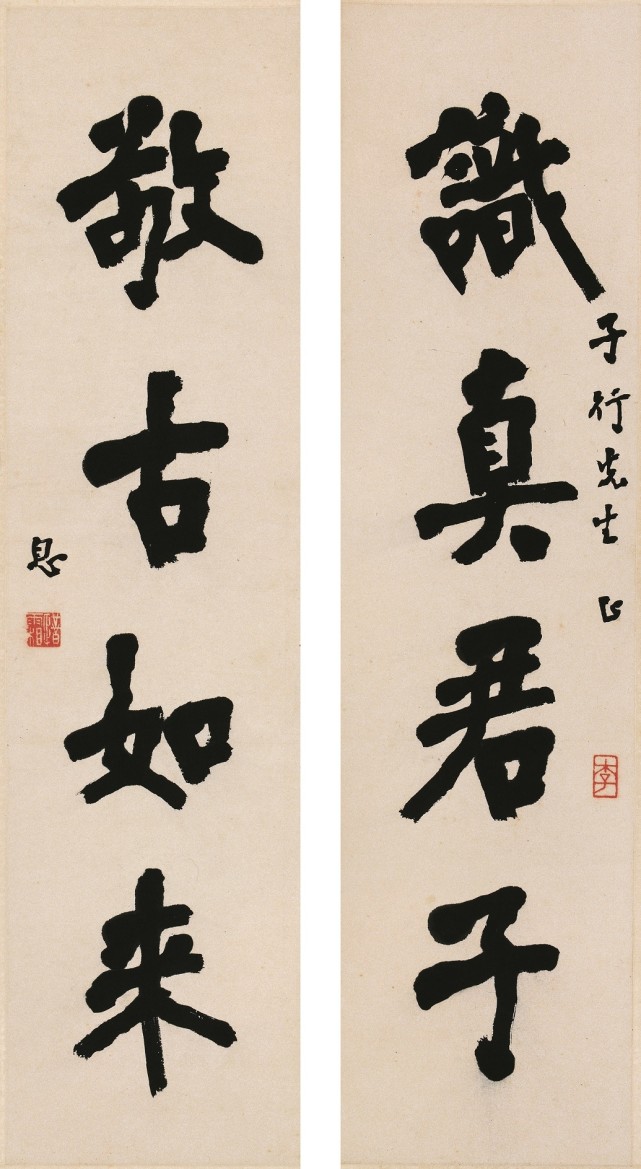 識真君子
子行先生正
李
敬古如来
息
息霜